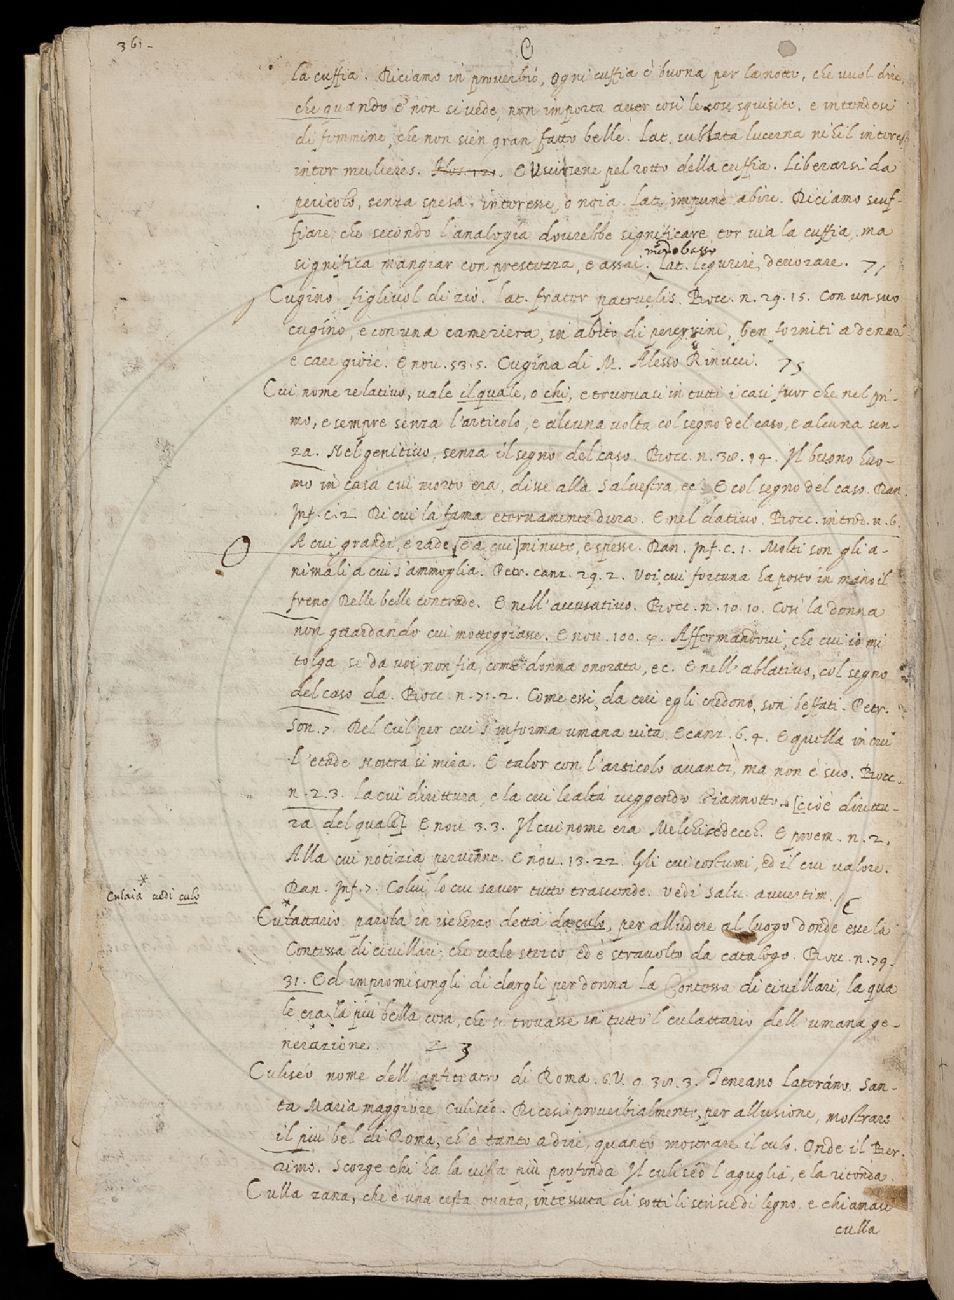 361.
C
la cuffia. Diciamo in proverbio, Ogni cuffia è buona per la notte, che vuol dire,
che quando e' non si vede, non importa aver così le cose squisite, e intendesi
di femmine, che non sien gran fatto belle. Lat. sublata lucerna nihil interest
inter mulieres. E Uscirsene pel rotto della cuffia. Liberarsi da
pericolo, senza spesa. interesse, o noia. Lat. impune abire. Diciamo scuf-
fiare, che secondo l'analogia dovrebbe significare tor via la cuffia, ma
modo basso
significa mangiar con prestezza, e assai. Lat. ligurire, devorare.
Cugino figliuol di zio. Lat. frater patruelis. Bocc. n. 29. 15. Con un suo
cugino, e con una cameriera, in abito di peregrini, ben forniti a denari
e care gioie. E nov. 53. 5. Cugina di M. Alesso Rinucci.
Cui nome relativo, vale il quale, o chi, e truovasi in tutti i casi fuor che nel pri-
mo, e sempre senza l'articolo, e alcuna volta col segno del caso, e alcuna sen-
za. Nel genitivo, senza il segno del caso. Bocc. n. 38. 14. Il buono huo-
mo in casa cui morto era, disse alla Salvestra, ec. E col segno del caso. Dan.
Inf. c. 2. Di cui la fama eternamente dura. E nel dativo. Bocc. introd. n. 6.
A cui grandi, e rade [e a cui] minute, e spesse. Dan. Inf. c. 1. Molti son gli a-
nimali a cui s'ammoglia. Petr. canz. 29. 2. Voi, cui fortuna ha posto in mano il
freno Delle belle contrade. E nell'accusativo. Bocc. n. 10. 10. Così la donna
non guardando cui motteggiasse. E nov. 100. 4. Affermandovi, che cui io mi
tolga se da voi non fia, come donna onorata, ec. E nell'ablativo, col segno
del caso da. Bocc. n. 71. 2. Come essi, da cui egli credono, son beffati. Petr.
Son. 7. Del Ciel per cui s'informa umana vita. E canz. 6. 4. E quella in cui
l'etade Nostra si mira. E talor con l'articolo avanti, ma non è suo. Bocc.
n. 2. 3. la cui dirittura, e la cui lealtà veggendo Giannotto, [cioè dirittu-
ra del quale] E nov. 3. 3. Il cui nome era Melchisedech. E proem. n. 2.
Alla cui notizia pervenne. E nov. 13. 22. Gli cui costumi, ed il cui valore.
Dan. Inf. 7. Colui, lo cui saver tutto trascende. Vedi Salv. avvertim.
Culaia vedi culo
Culattario parola in ischerzo detta da culo, per alludere al luogo donde esce la
Contessa di civillari, che vale sterco ed è stravolto da catalogo. Bocc. n. 79.
31. Ed impromisongli di dargli per donna la Contessa di civillari, la qua
le era la più bella cosa, che si trovasse in tutto 'l culattario dell'umana ge-
nerazione.
Culiseo nome dell'anfiteatro di Roma. G. V. 9. 38. 3. Teneano Laterano. San-
ta Maria maggiore Culiseo. Dicesi proverbialmente, per allusione, mostrare
il più bel di Roma, ch'è tanto a dire, quanto mostrare il culo. Onde il Ber-
Scorge chi ha la vista più profonda Il culiseo l'aguglia, e la ritonda.
Culla zana, che è una cesta ovata, intessuta di sottili striscie di legno. e chiamasi
culla